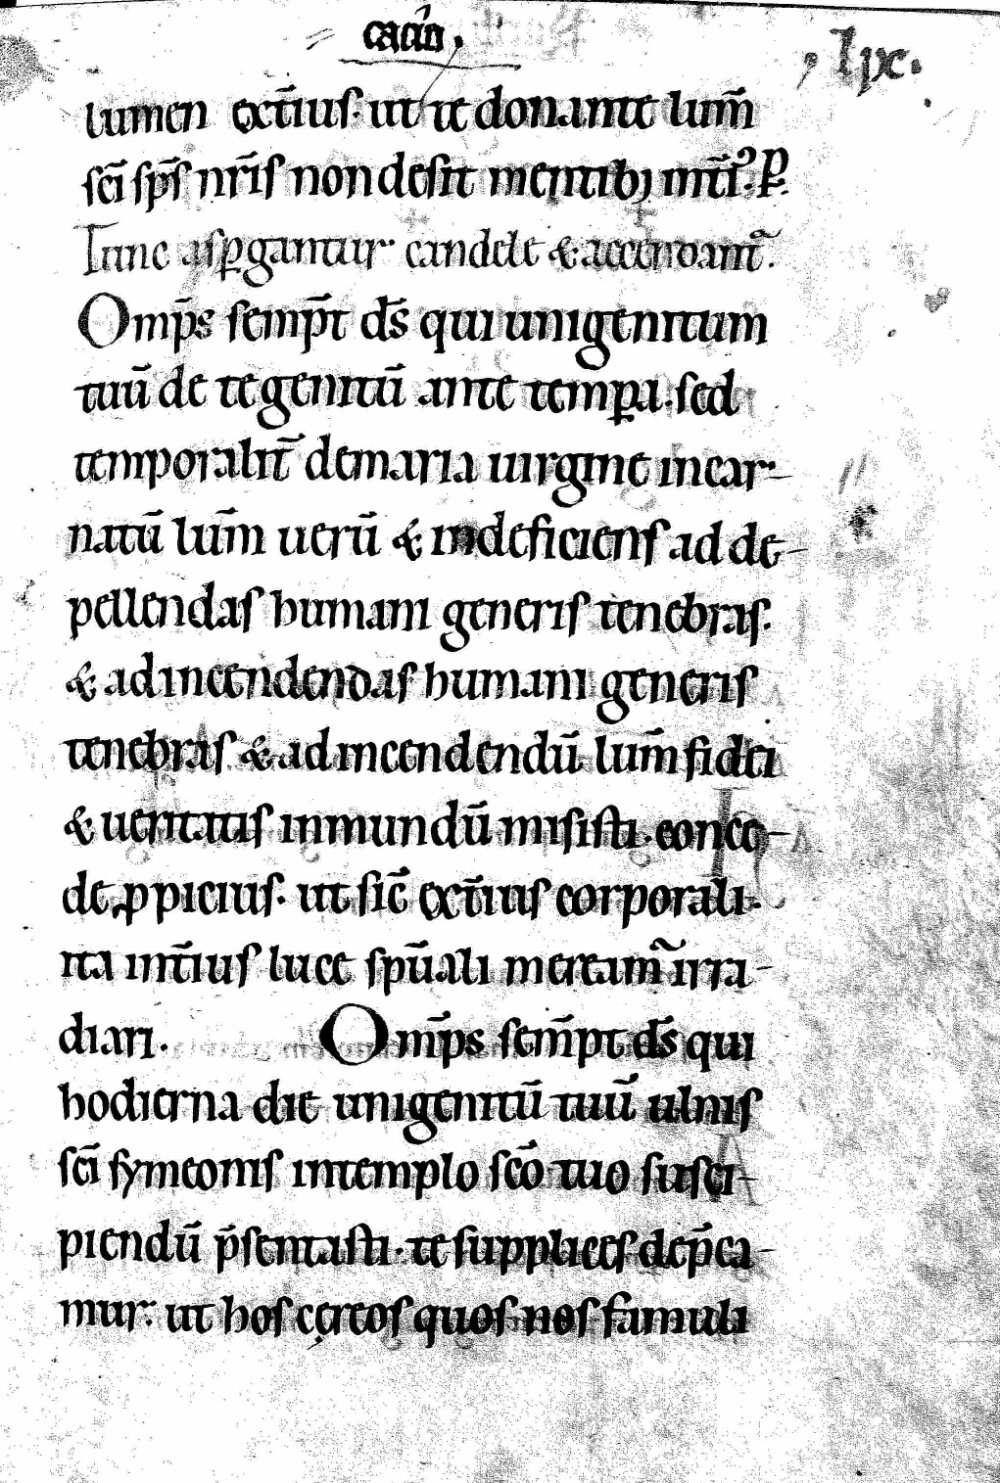 cacio.
lxx.
lumen ext̄ius. ut te donante lum̄
sc̄i sp̄s nr̄is non desit mentibꝫ int̄i᾽. ꝑ.
Tunc asꝑgantur candele & accendant᷑.
Omp̄s semp̄t ds̄ qui unigenitum
tuū de te genitū ante tempꝑa. sed
temporalit̄ demaria uirgine incar-
natū lum̄ uerū & indeficiens ad de-
pellendas humani generis tenebras.
& ad incendendas humani generis
tenebras & ad incendendū lum̄ fidei
& ueritatis inmundū misisti. conce-
de ꝓpicius. ut sic̄ ext̄ius corporali-
ta int̄ius luce spū̄ali meream̄ irra-
diari. Omp̄s sem̄pt ds̄ qui
hodierna die unigenitū tuū ulnis
sc̄i symeonis intemplo sc̄o tuo susci-
piendū p̄sentasti. te supplices dep̄ca-
mur. ut hos cereos quos nos famuli